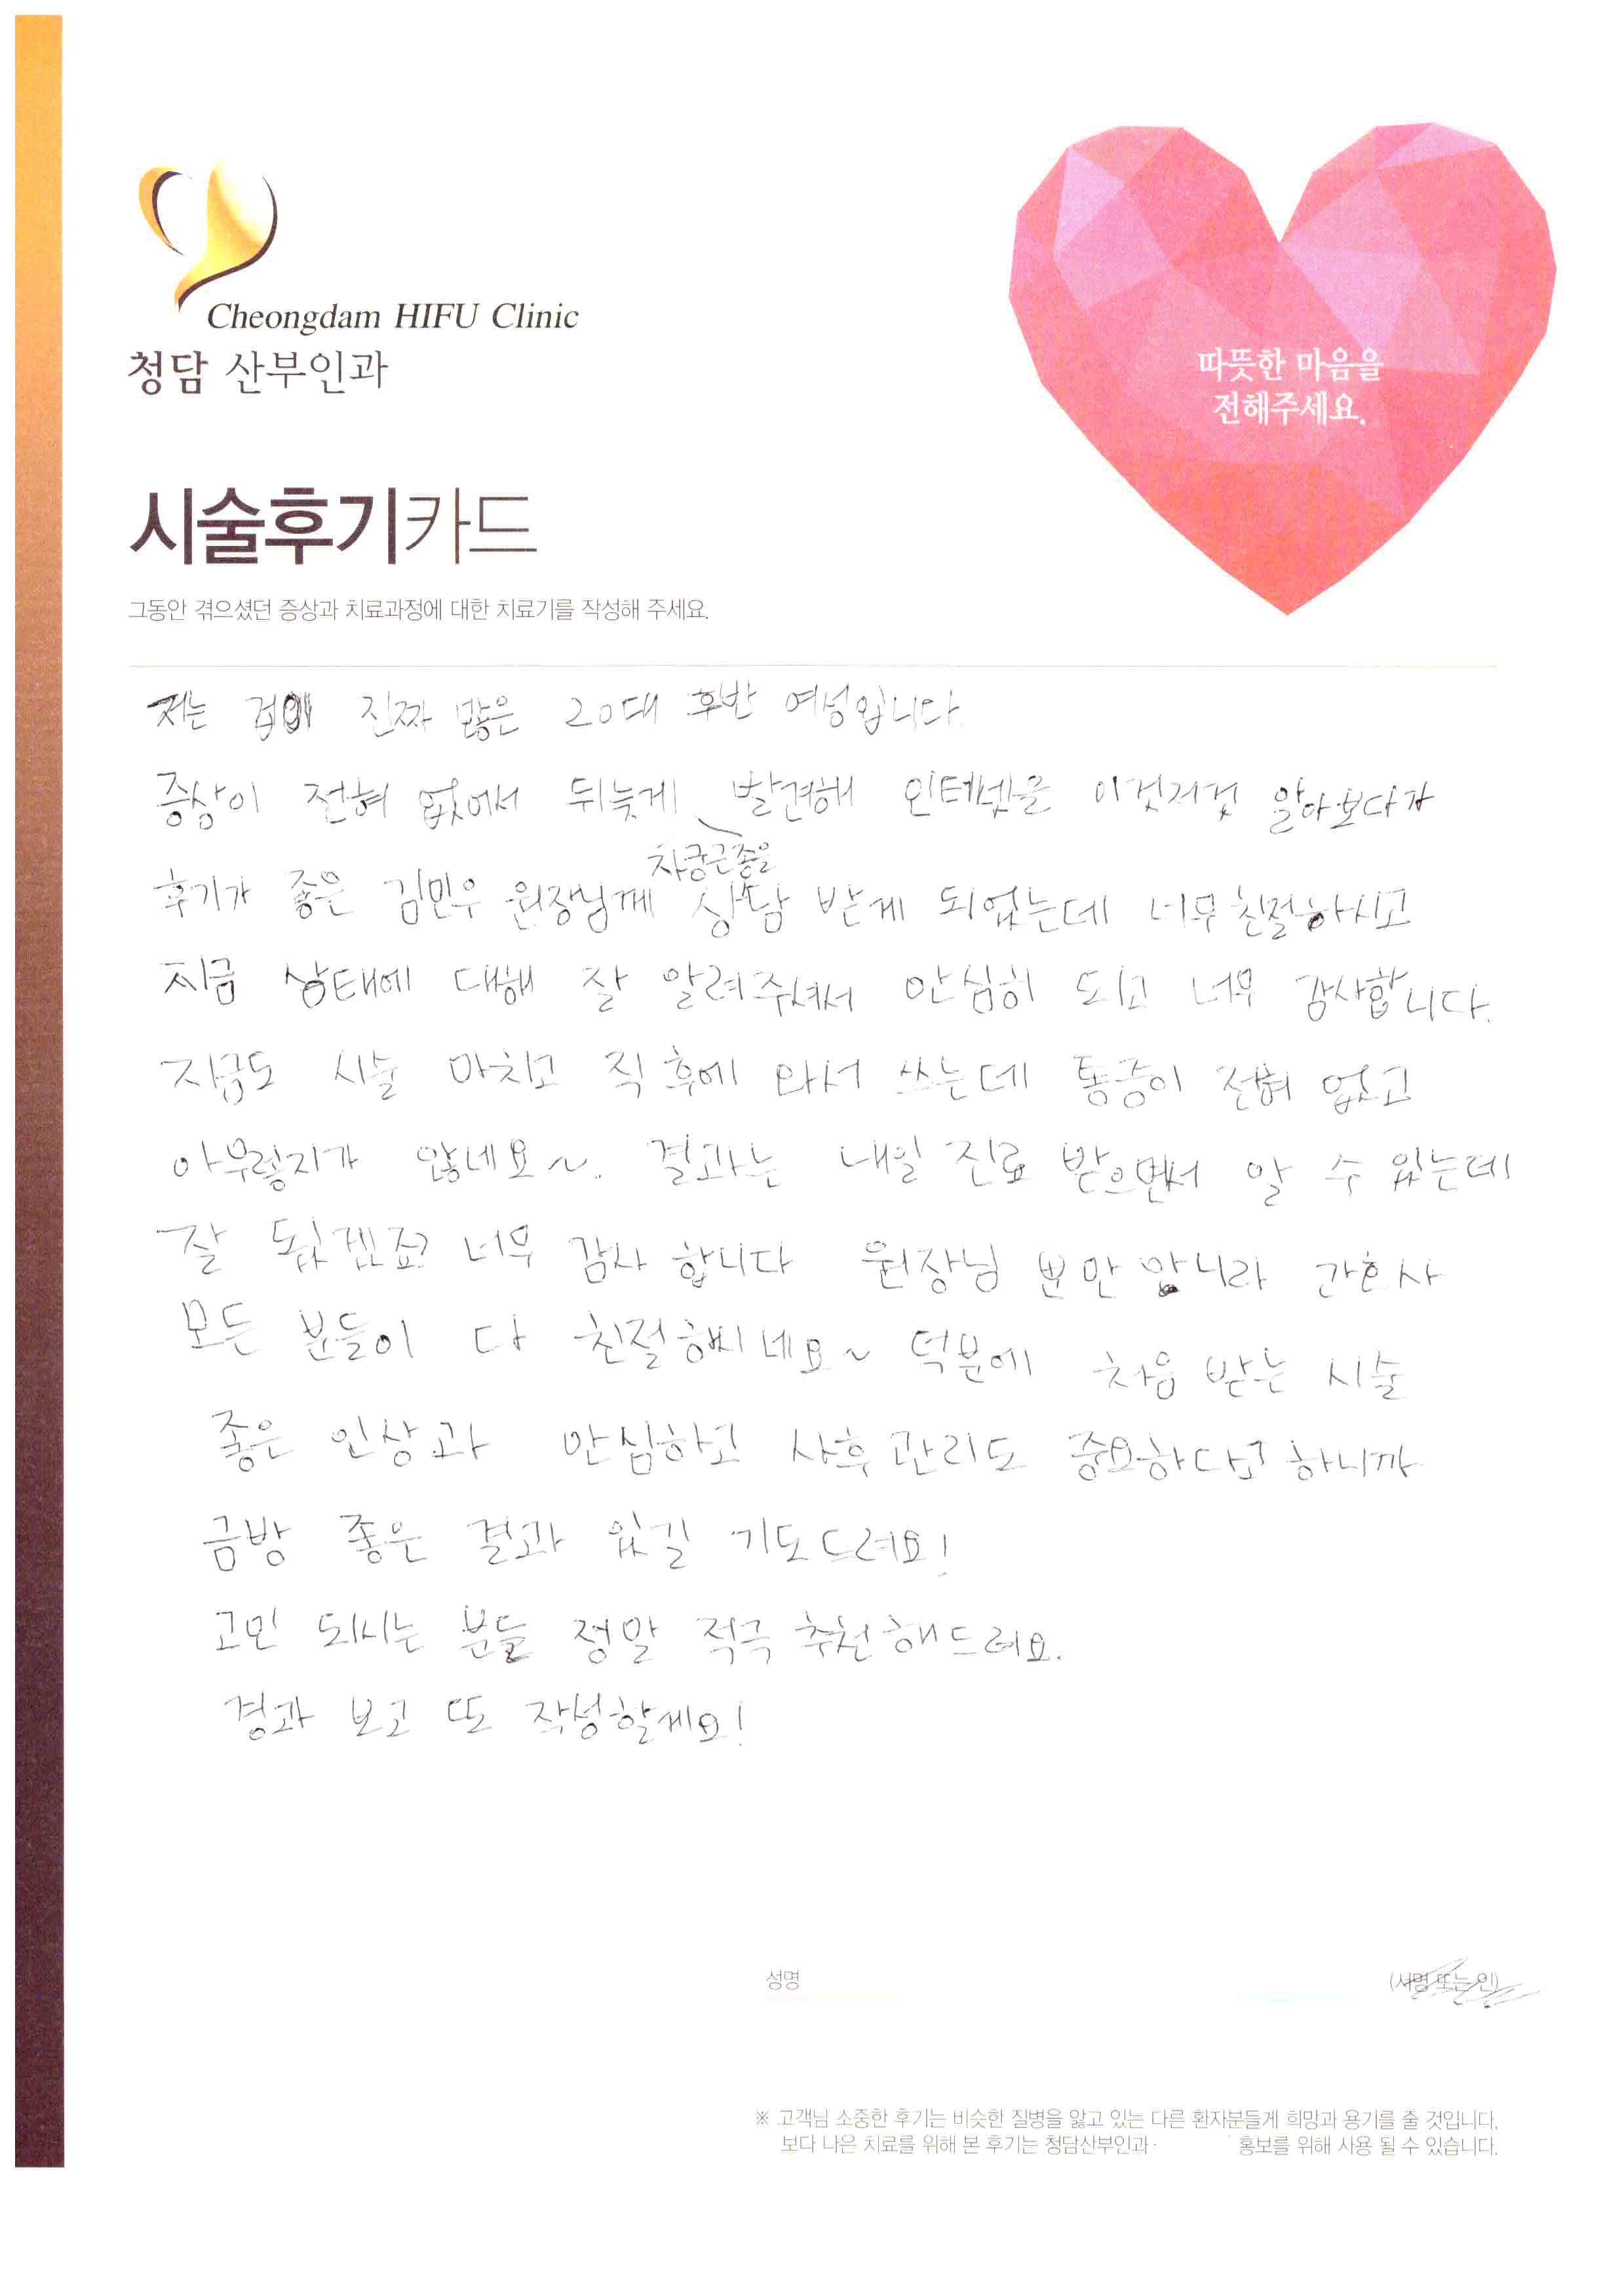 Cheongdam HIFU Clinic
청담 산부인과
따뜻한 마음을
전해주세요.
시술후기카드
그동안 겪으셨던 증상과 치료과정에 대한 치료기를 작성해 주세요.
저는 겁이 진짜 많은 20대 후반 여성입니다.
증상이 전혀 없어서 뒤늦게 자궁근종을 발견해 인터넷을 이것저것 알아보다가
후기가 좋은 김민우 원장님께 상담 받게 되었는데 너무 친절하시고
지금 상태에 대해 잘 알려주셔서 안심히 되고 너무 감사합니다.
지금도 시술 마치고 직후에 와서 쓰는데 통증이 전혀 없고
아무렇지가 않네요~. 결과는 내일 진료 받으면서 알 수 있는데
잘 됬겠죠? 너무 감사 합니다 원장님 뿐만 압니라 간호사
모든 분들이 다 친절하씨네요~ 덕분에 처음 받는 시술
좋은 인상과 안심하고 사후관리도 중요하다고 하니까
금방 좋은 결과 있길 기도드려요!
고민 되시는 분들 정말 적극 추천해드려요.
경과 보고 또 작성할께요!
성명 (서명 또는 인)
※ 고객님 소중한 후기는 비슷한 질병을 앓고 있는 다른 환자분들게 희망과 용기를 줄 것입니다.
보다 나은 치료를 위해 본 후기는 청담산부인과· 홍보를 위해 사용 될 수 있습니다.